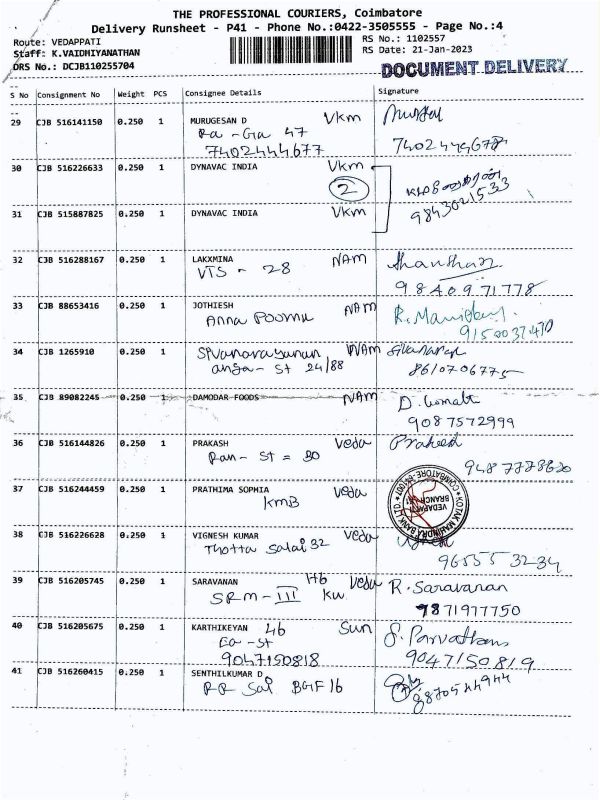 THE PROFESSIONAL COURIERS, Coimbatore
Delivery Runsheet - P41 - Phone No.:0422-3505555 - Page No.:4
Route: VEDAPPATI
RS No.: 1102557
Staff: K.VAIDHIYANATHAN
RS Date: 21-Jan-2023
DRS No.: DCJB110255704
DOCUMENT DELIVERY
S No Consignment No Weight PCS Consignee Details Signature
29 CJB 516141150 0.250 1 MURUGESAN D Vkm
Ra - Ga 47
7402444677
30 CJB 516226633 0.250 1 DYNAVAC INDIA Vkm
2
9843021533
31 CJB 515887825 0.250 1 DYNAVAC INDIA Vkm
32 CJB 516288167 0.250 1 LAKXMINA NAM
VTS - 28
9840971778
33 CJB 88653416 0.250 1 JOTHIESH NAM
Anna Poorna
34 CJB 1265910 0.250 1 Sivanarayanan NAM
St 24/88
8610706775
35 CJB 89082245 0.250 1 DAMODAR FOODS NAM
9087572999
36 CJB 516144826 0.250 1 PRAKASH Veda Prakash
Ran - St = 30
37 CJB 516244459 0.250 1 PRATHIMA SOPHIA Veda
KmB
KOTAK MAHINDRA BANK LTD
VEDAPATTI BRANCH
COIMBATORE-641007
38 CJB 516226628 0.250 1 VIGNESH KUMAR Veda
Thotta Salai 32
96555 3234
39 CJB 516205745 0.250 1 SARAVANAN Hb Veda R. Saravanan
SRM - III Kw.
9871977750
40 CJB 516205675 0.250 1 KARTHIKEYAN 46 Sun
9047150818
9047150819
41 CJB 516260415 0.250 1 SENTHILKUMAR D
RR Sai BGF16